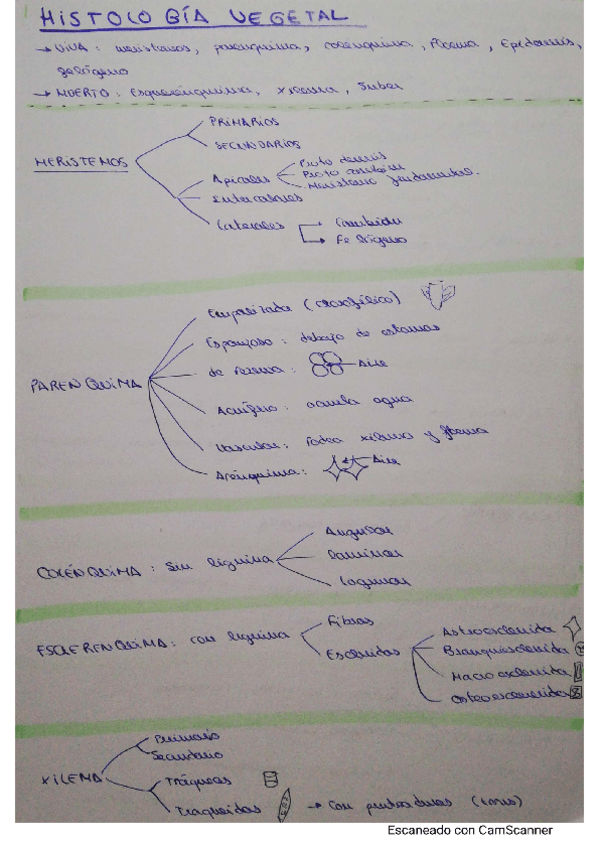 HISTOLOGÍA VEGETAL
→ VIVA : meristemos, parenquima, colenquima, Floema, Epidermis,
felógeno
→ MUERTO : Esquerenquima, xilema, Suber
PRIMARIOS
SECUNDARIOS
MERISTEMOS
Apicales
Proto dermis
Proto cambium
Meristemo fundamental.
Intercalares
Laterales
Cambium
Felógeno
Empalizada (clorofílico)
Esponjoso : debajo de estomas
PARENQUIMA
de reserva :
Aire
Acuífero : acumula agua
Vascular : rodea xilema y floema
Aerénquima :
Aire
Angular
COLÉNQUIMA : Sin lignina
Laminar
Lagunar
Fibras
ESCLERENQUIMA : con lignina
Esclereidas
Astroesclereida
Branquiesclereida
Macroesclereida
Osteoesclereida
Primario
Secundario
XILEMA
Tráqueas
Traqueidas → Con punteaduras (torus)
Escaneado con CamScanner